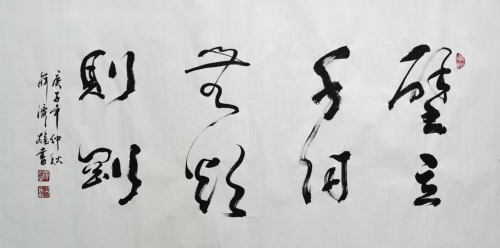 壁立
千仞
無欲
則剛
庚子年仲秋
薛 書